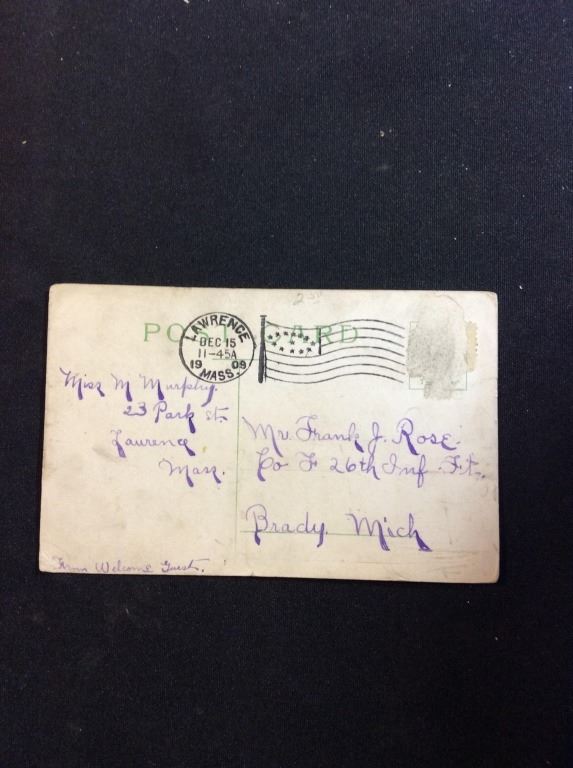 POST CARD
LAWRENCE
DEC 15
11-45A
1909
MASS.
Miss M Murphy.
23 Park st.
Lawrence
Mass.
Mr. Frank J. Rose.
Co F 26th Inf Ft.
Brady. Mich
From Welcome Guest.